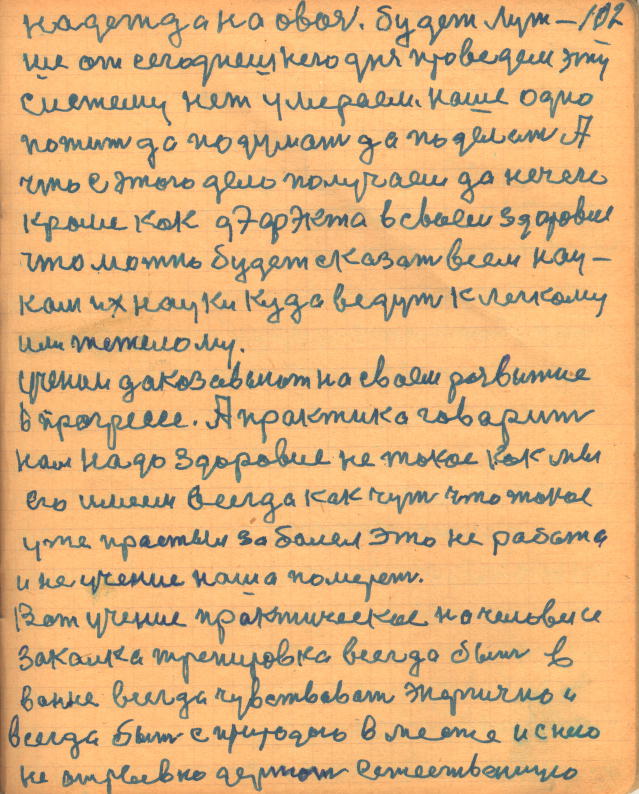 надежда на овоя. будет луж – 102
ше от сегоднешнего дня проведем эту
систему нет умераем. наше одно
пожит да подумат да поделат А
что с этого дело получаем да нечего
кроме как дэфэкта в своем здоровие
что можно будет сказат всем нау –
кам их науки куда ведут к легкому
или тежелому.
ученик доказавают на своем розвитие
в прогресе. А практика говарит
нам надо здоровие не такое как мы
его имеем всегда как чут что такое
уже прастыл заболел это не работа
и не учение наша померет.
Вот учение практическое на человеке
закалка тренировка всегда быт в
ванне всегда чувствоват энергично и
всегда быт с природою в месте и с нею
не отрывно держат естественную